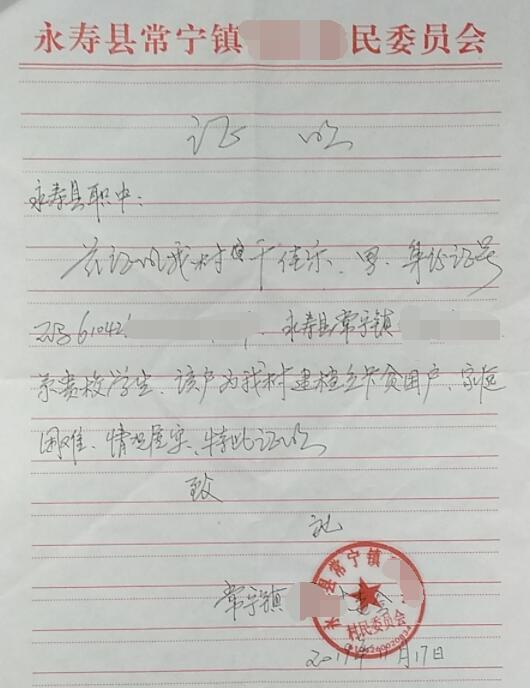 永寿县常宁镇 民委员会
证 明
永寿县职中:
兹证明我村 佳乐、男、身份证号
码61042 ，永寿县常宁镇
系贵校学生、该户为我村建档立卡贫困户、家庭
困难、情况属实、特此证明
致
礼
常宁镇
永 县常宁镇
村民委员会
2019年11月17日